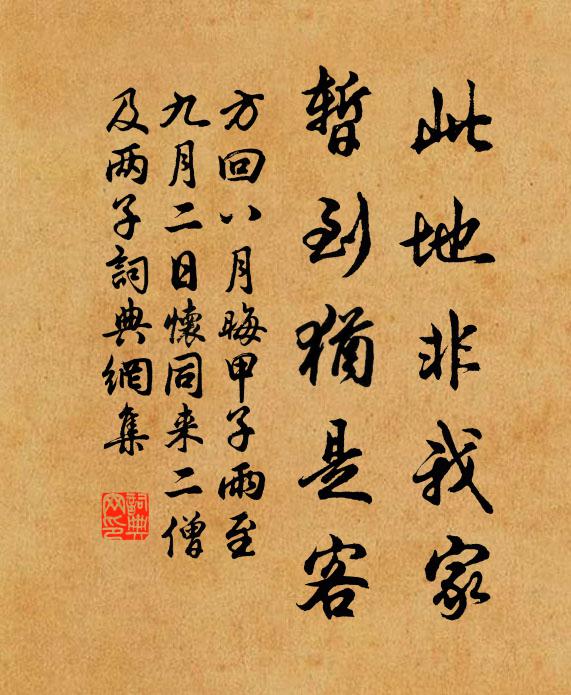 此地非我家
暫到猶是客
方回八月晦甲子雨至
九月二日懷同来二僧
及两子詞典網集
詞典
网印